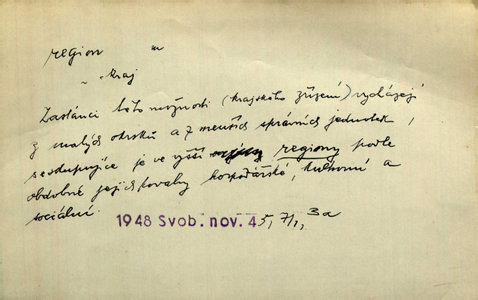 region m
~ kraj
Zastánci této možnosti (krajského zřízení) vycházejí
z malých okrsků a z menších správních jednotek,
seskupujíce je ve vyšší regiony podle
obdobné jejich povahy hospodářské, kulturní a
sociální.
1948 Svob. nov. 45, 7/1, 3a